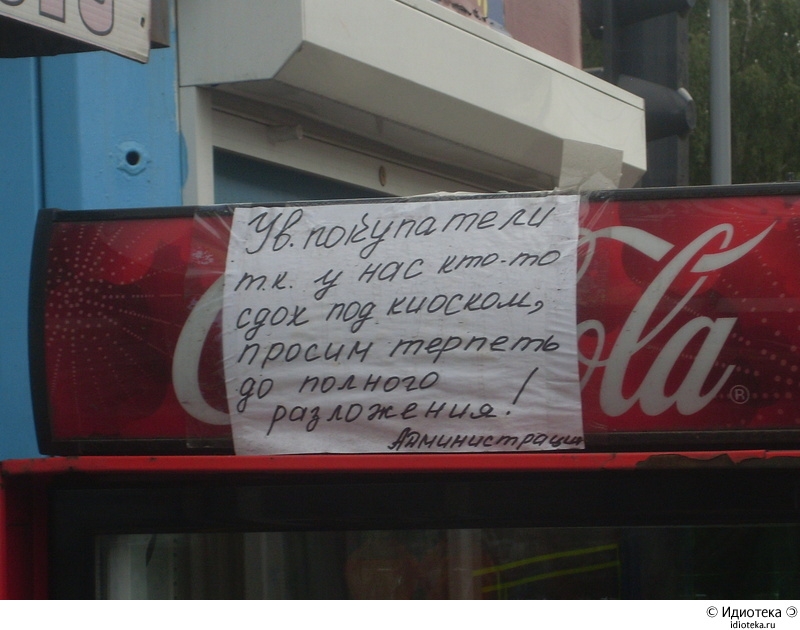 Ув. покупатели
т.к. у нас кто-то
сдох под киоском,
просим терпеть
до полного
разложения!
Администрация
ola®
© Идиотека
idioteka.ru